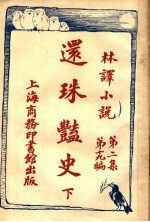 林譯小說
第二集
第十九編
還珠豔史 下
上海商務印書館出版